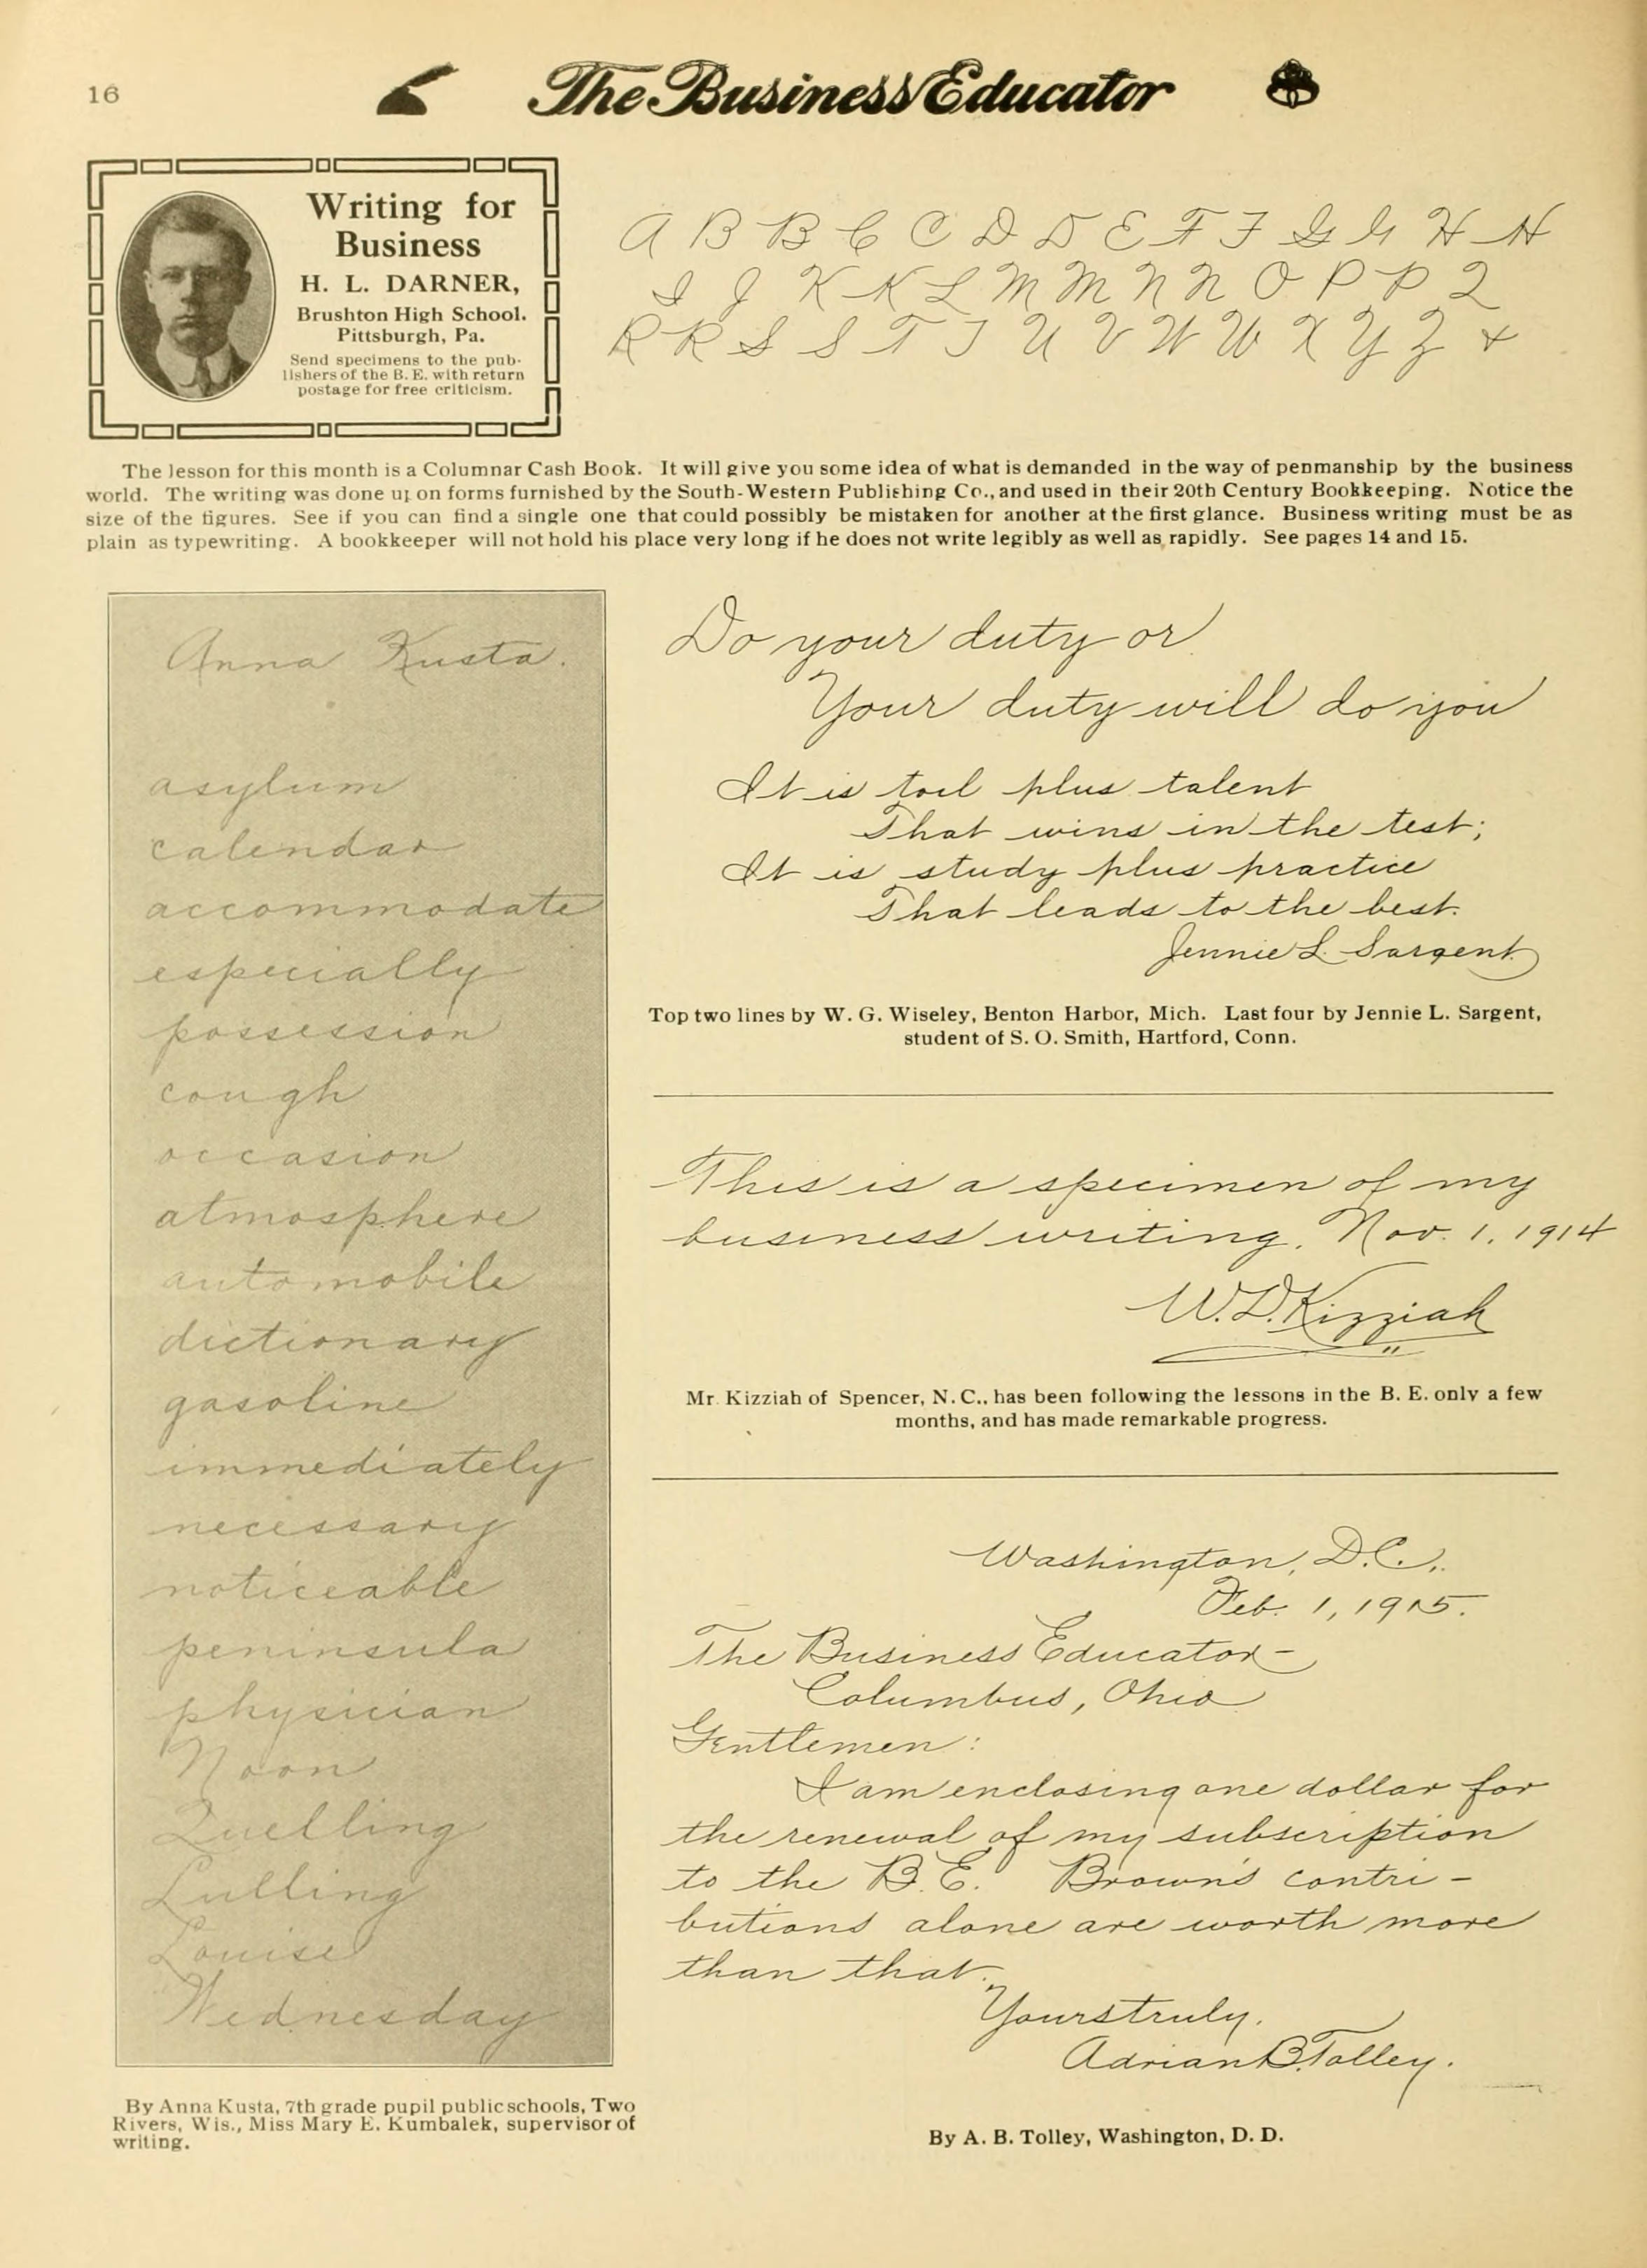 16
The Business Educator
Writing for
Business
H. L. DARNER,
Brushton High School.
Pittsburgh, Pa.
Send specimens to the pub-
lishers of the B. E. with return
postage for free criticism.
A B B C C D D E F F G G H H
I J K K L M M N N O P P Q
R R S S T T U V W W X Y Z &
The lesson for this month is a Columnar Cash Book. It will give you some idea of what is demanded in the way of penmanship by the business
world. The writing was done upon forms furnished by the South-Western Publishing Co., and used in their 20th Century Bookkeeping. Notice the
size of the figures. See if you can find a single one that could possibly be mistaken for another at the first glance. Business writing must be as
plain as typewriting. A bookkeeper will not hold his place very long if he does not write legibly as well as rapidly. See pages 14 and 15.
Anna Kusta.
asylum
calendar
accommodate
especially
possession
cough
occasion
atmosphere
automobile
dictionary
gasoline
immediately
necessary
noticeable
peninsula
physician
Noon
Quelling
Lulling
Louise
Wednesday
By Anna Kusta, 7th grade pupil public schools, Two
Rivers, Wis., Miss Mary E. Kumbalek, supervisor of
writing.
Do your duty or
Your duty will do you
It is toil plus talent
That wins in the test;
It is study plus practice
That leads to the best.
Jennie L. Sargent
Top two lines by W. G. Wiseley, Benton Harbor, Mich. Last four by Jennie L. Sargent,
student of S. O. Smith, Hartford, Conn.
This is a specimen of my
business writing. Nov. 1, 1914
W. D. Kizziah
Mr. Kizziah of Spencer, N. C., has been following the lessons in the B. E. only a few
months, and has made remarkable progress.
Washington, D.C.,
Feb. 1, 1915.
The Business Educator
Columbus, Ohio
Gentlemen:
I am enclosing one dollar for
the renewal of my subscription
to the B. E. Brown's contri-
butions alone are worth more
than that.
Yours truly,
Adrian B. Tolley.
By A. B. Tolley, Washington, D. D.